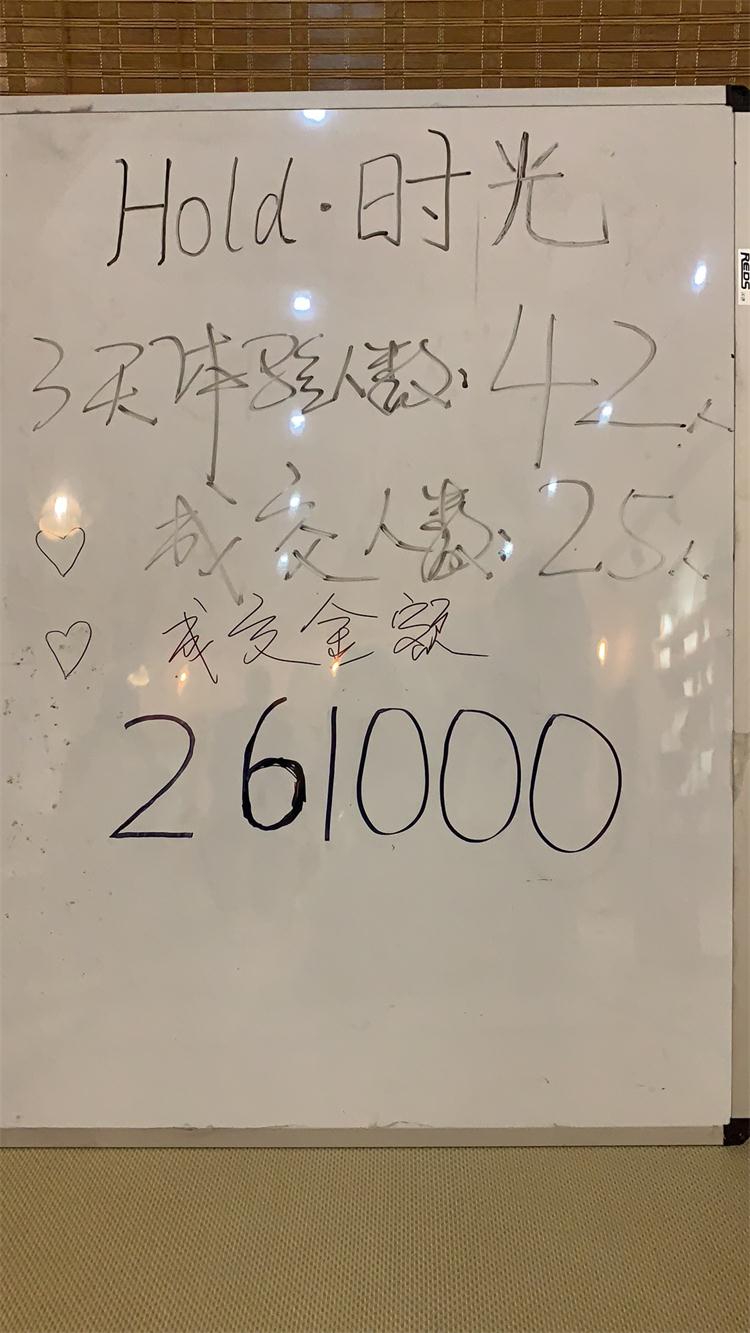 Hold·时光
REDS
3天体验人数：42人
成交人数：25人
♡ 成交金额
261000